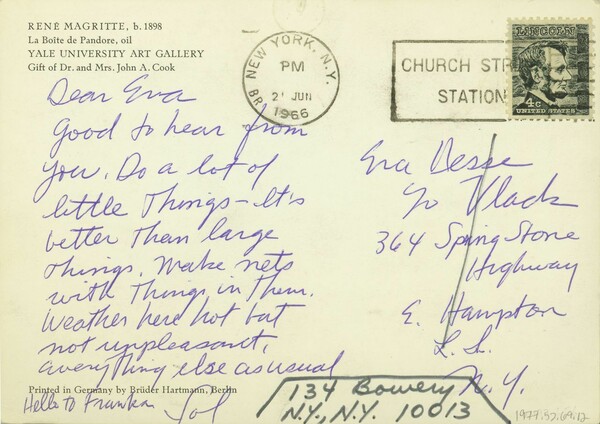 RENÉ MAGRITTE, b. 1898
La Boîte de Pandore, oil
YALE UNIVERSITY ART GALLERY
Gift of Dr. and Mrs. John A. Cook
Dear Eva
Good to hear from
you. Do a lot of
little things – it's
better than large
things. Make nets
with things in them.
Weather here hot but
not unpleasant,
everything else as usual
Printed in Germany by Brüder Hartmann, Berlin
Hello to
Sol
NEW YORK, N.Y.
PM
21 JUN
1966
CHURCH STR
STATION
LINCOLN
4c
UNITED STATES
Eva Hesse
c/o Vlack
364 Spring Stone
Highway
E. Hampton
L.I.
N.Y.
134 Bowery
N.Y., N.Y. 10013
1977.52.69.12